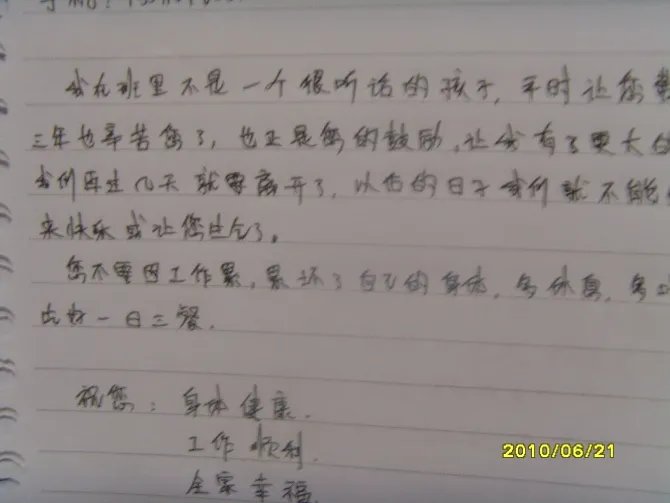 我在班里不是一个很听话的孩子，平时让您
三年也辛苦您了，也正是您的鼓励，让我有了更大
我们再过几天就要离开了，以后的日子我们就不能
来快乐或让您生气了。
您不要因工作累，累坏了自己的身体，多休息，多
吃好一日三餐.
祝您：身体健康.
工作顺利.
全家幸福
2010/06/21